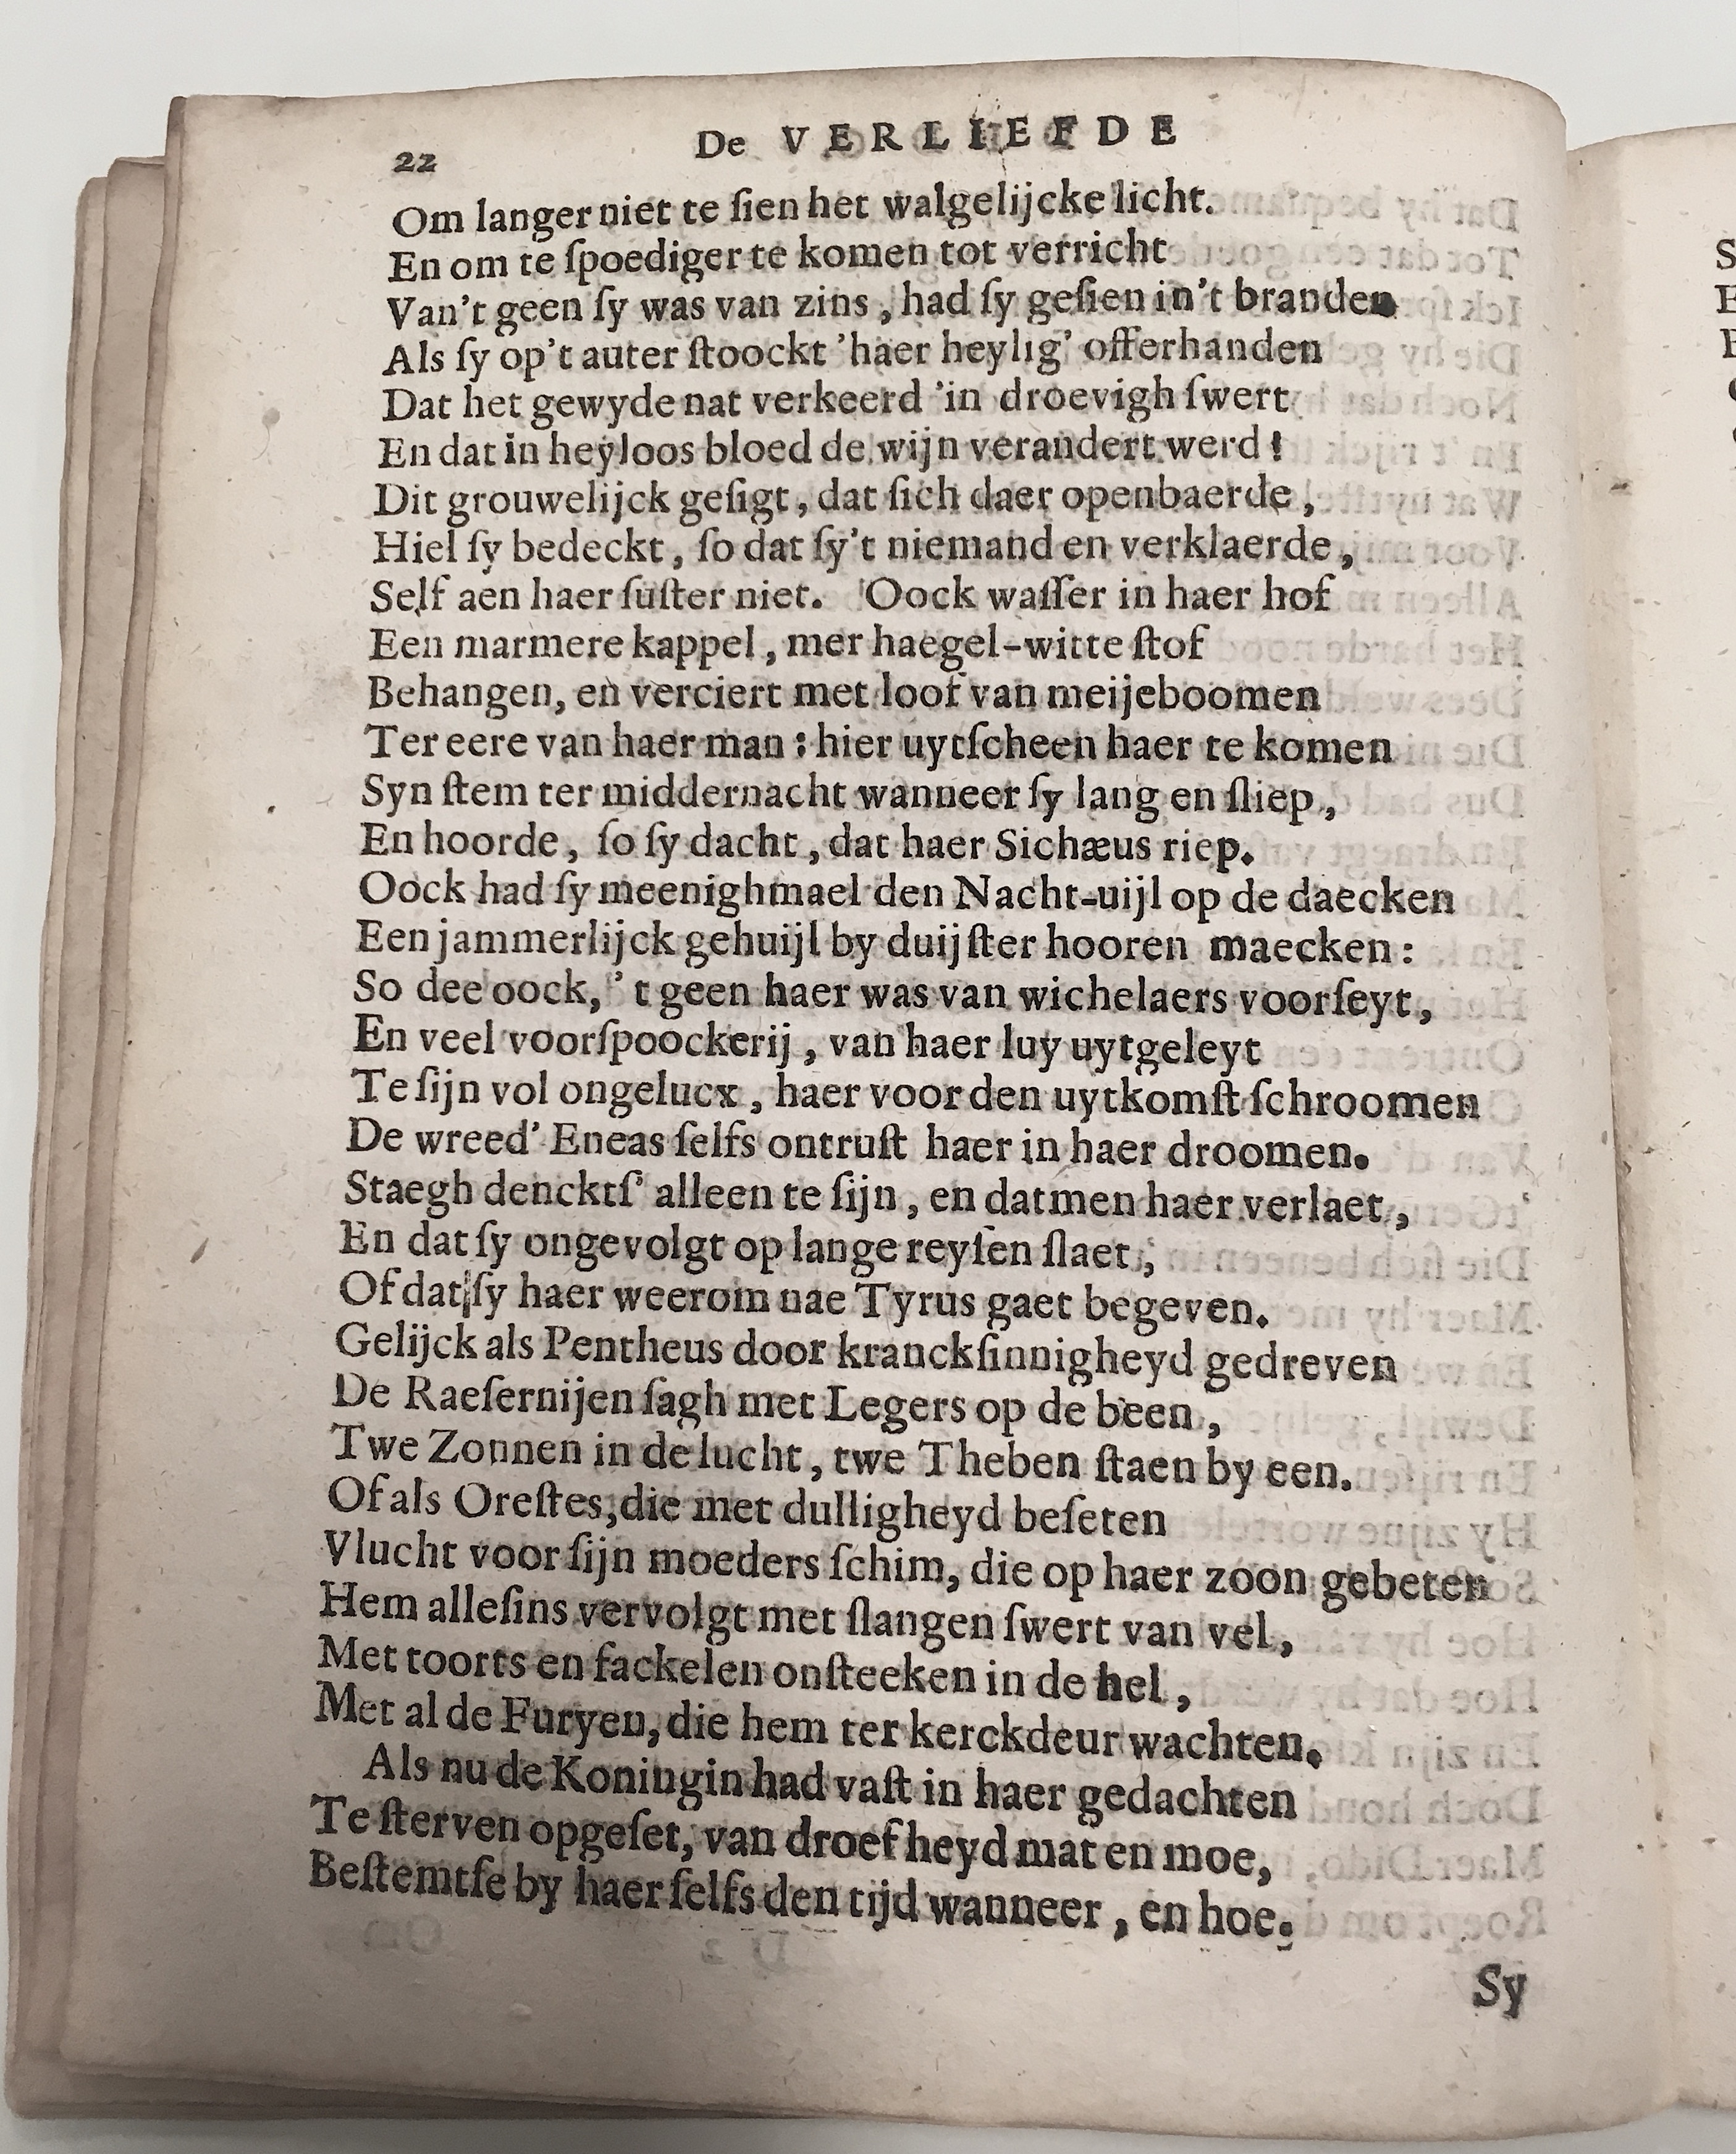 22 De VERLIEFDE
Om langer niet te ſien het walgelijcke licht.
En om te ſpoediger te komen tot verricht
Van't geen ſy was van zins, had ſy geſien in't branden
Als ſy op't auter ſtoockt 'haer heylig' offerhanden
Dat het gewyde nat verkeerd 'in droevigh ſwert
En dat in heyloos bloed de wijn verandert werd!
Dit grouwelijck geſigt, dat ſich daer openbaerde,
Hiel ſy bedeckt, ſo dat ſy't niemand en verklaerde,
Self aen haer ſuſter niet. Oock waſſer in haer hof
Een marmere kappel, mer haegel-witte ſtof
Behangen, en verciert met loof van meijeboomen
Ter eere van haer man: hier uytſcheen haer te komen
Syn ſtem ter middernacht wanneer ſy lang en ſliep,
En hoorde, ſo ſy dacht, dat haer Sichæus riep.
Oock had ſy meenighmael den Nacht-uijl op de daecken
Een jammerlijck gehuijl by duijſter hooren maecken:
So dee oock, 't geen haer was van wichelaers voorſeyt,
En veel voorſpoockerij, van haer luy uytgeleyt
Te ſijn vol ongelucx, haer voor den uytkomſt ſchroomen
De wreed' Eneas ſelfs ontruſt haer in haer droomen.
Staegh dencktſ' alleen te ſijn, en datmen haer verlaet,
En dat ſy ongevolgt op lange reyſen ſlaet,
Of dat ſy haer weerom nae Tyrus gaet begeven.
Gelijck als Pentheus door kranckſinnigheyd gedreven
De Raeſernijen ſagh met Legers op de been,
Twe Zonnen in de lucht, twe Theben ſtaen by een.
Of als Oreſtes, die met dulligheyd beſeten
Vlucht voor ſijn moeders ſchim, die op haer zoon gebeten
Hem alleſins vervolgt met ſlangen ſwert van vel,
Met toorts en fackelen onſteeken in de hel,
Met al de Furyen, die hem ter kerckdeur wachten.
Als nu de Koningin had vaſt in haer gedachten
Te ſterven opgeſet, van droefheyd mat en moe,
Beſtemtſe by haer ſelfs den tijd wanneer, en hoe.
Sy